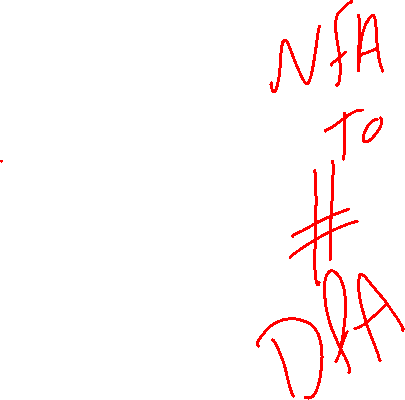 NFA
TO
#
DRA